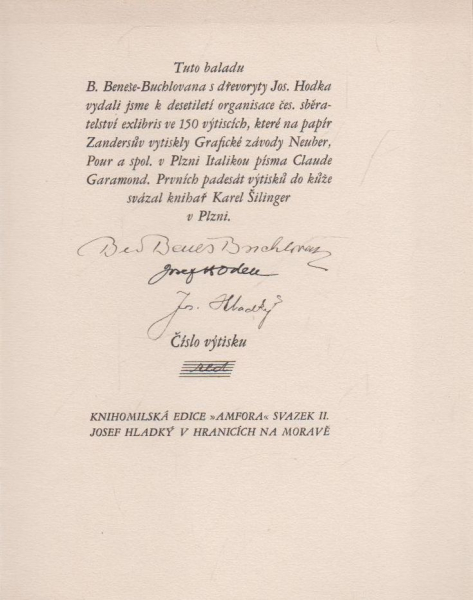 Tuto baladu
B. Beneše-Buchlovana s dřevoryty Jos. Hodka
vydali jsme k desetiletí organisace čes. sběra-
telství exlibris ve 150 výtiscích, které na papír
Zandersův vytiskly Grafické závody Neuber,
Pour a spol. v Plzni Italikou písma Claude
Garamond. Prvních padesát výtisků do kůže
svázal knihař Karel Šilinger
v Plzni.
Beneš Buchlovan
Josef Hodek
Jos. Hladký
Číslo výtisku
KNIHOMILSKÁ EDICE »AMFORA« SVAZEK II.
JOSEF HLADKÝ V HRANICÍCH NA MORAVĚ